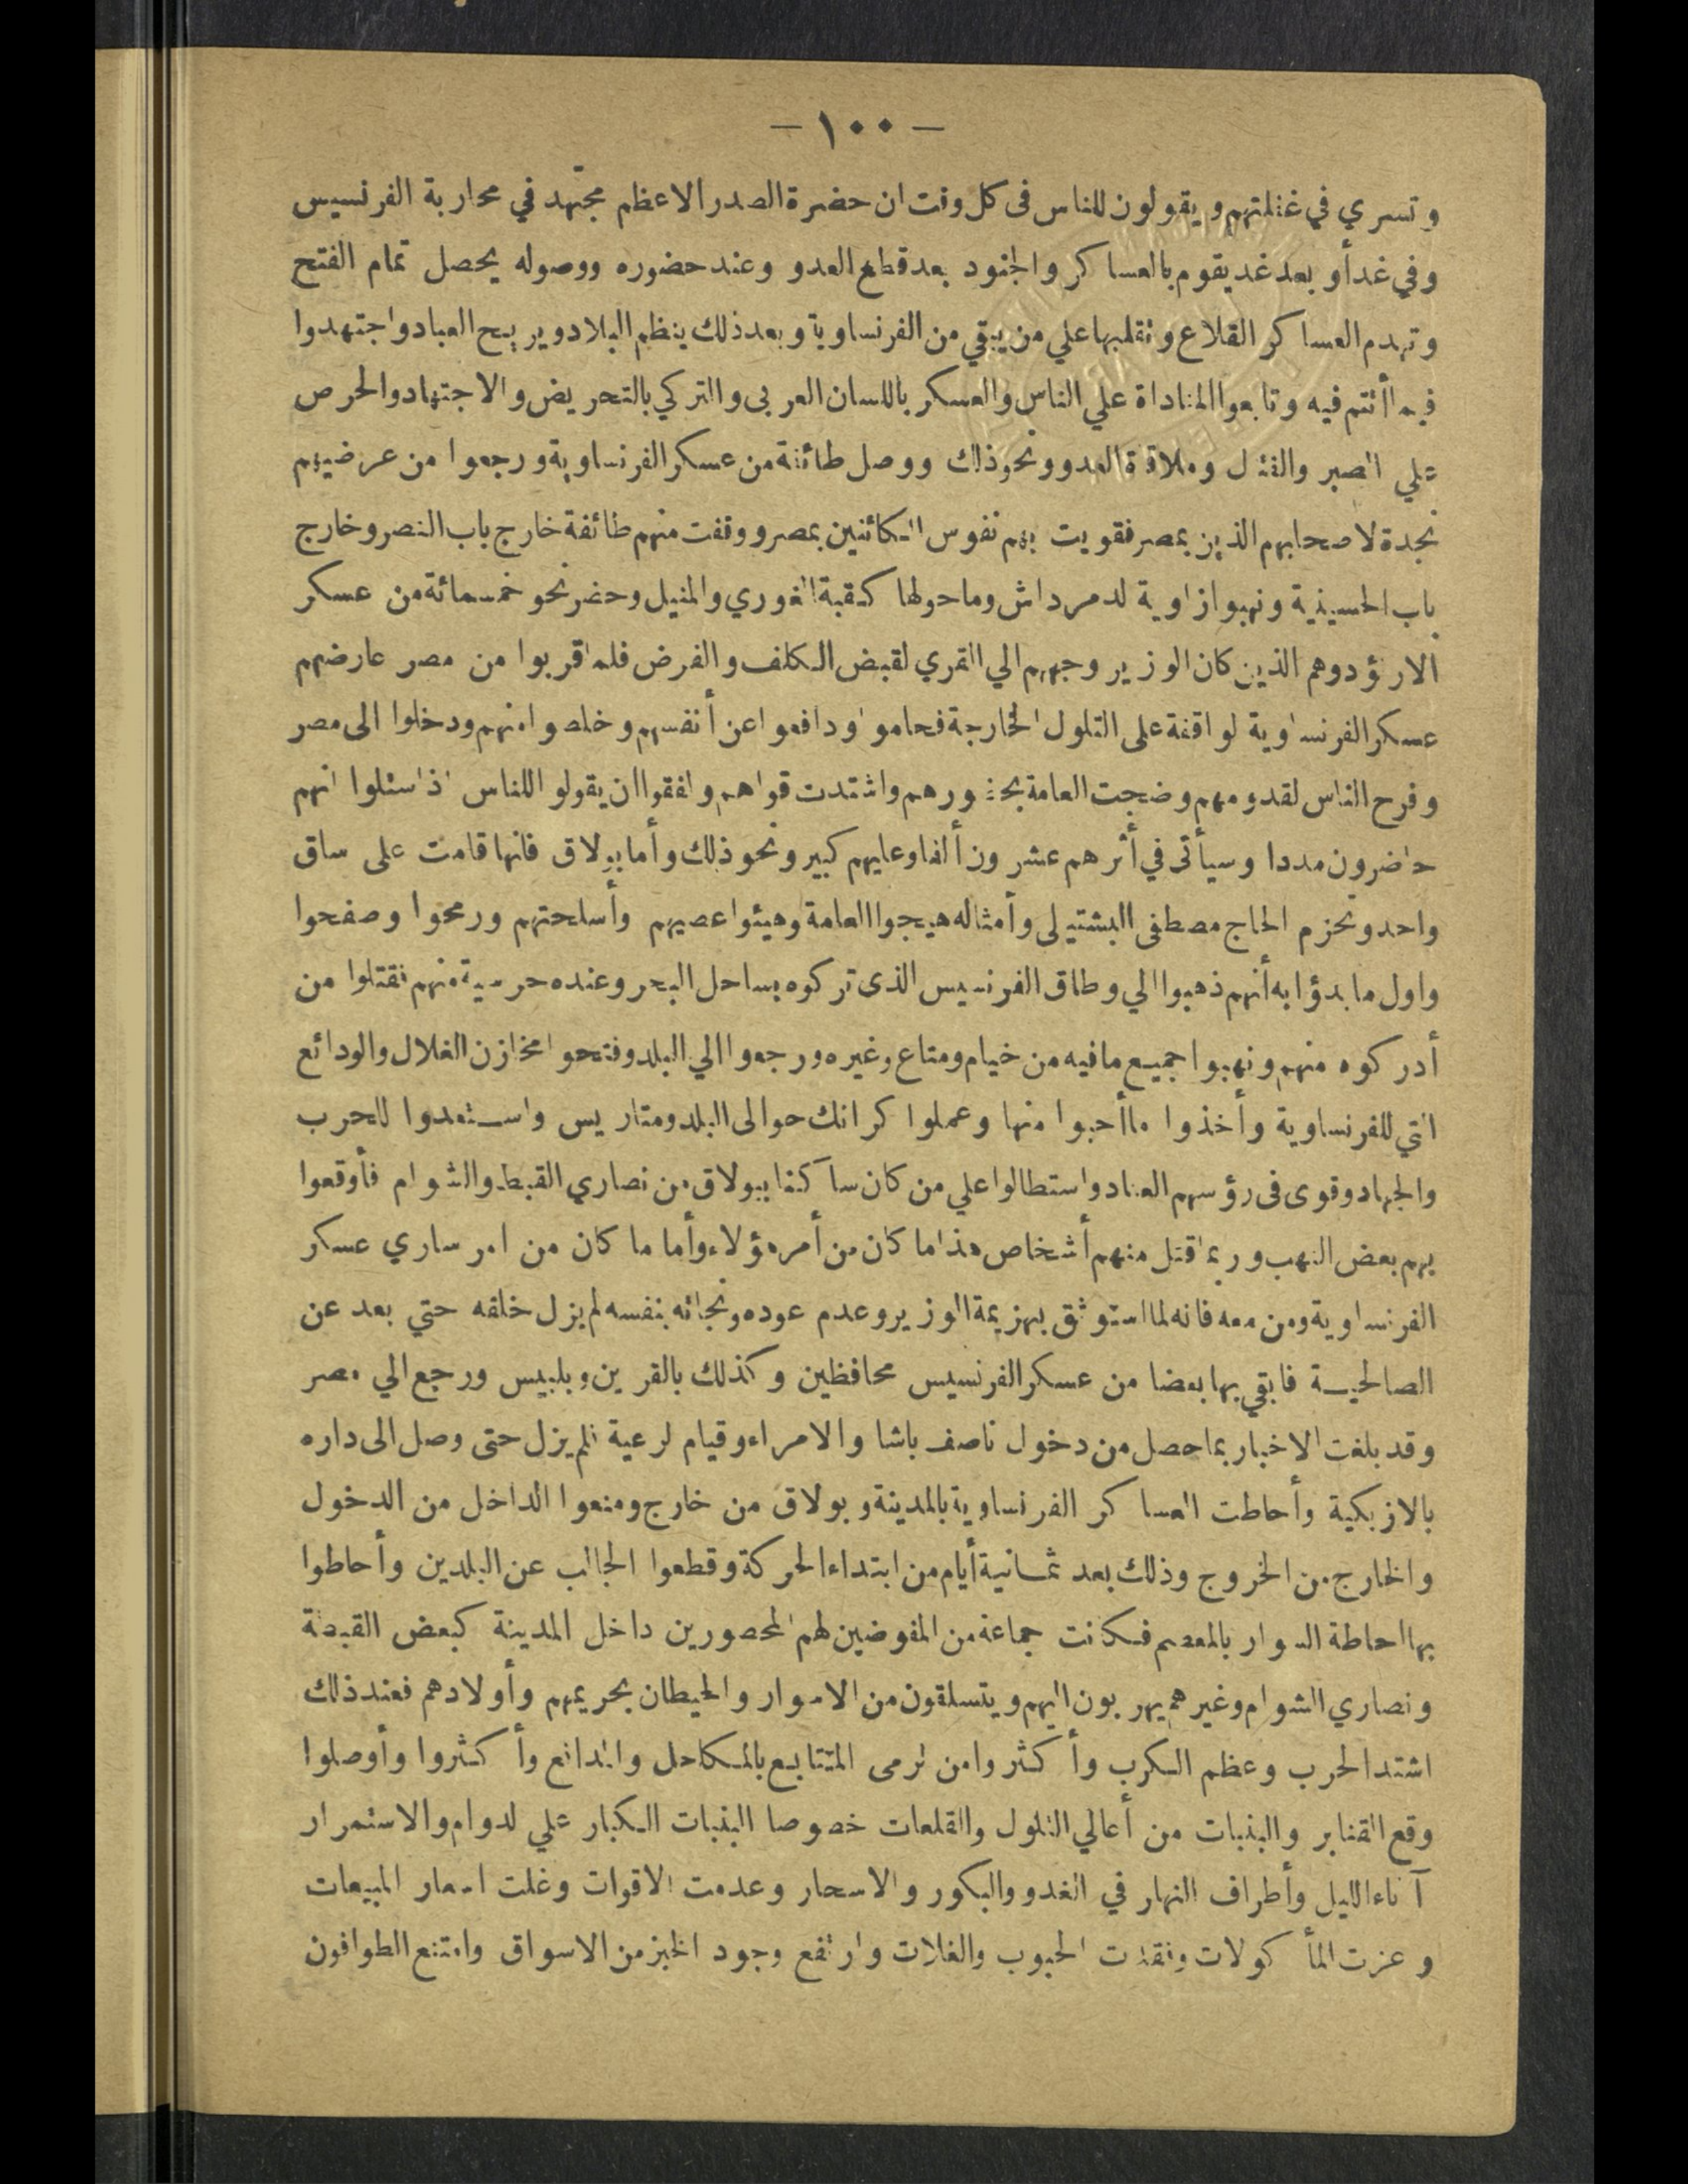 — ١٠٠ —
وتسري في غفلتهم ويقولون للناس فى كل وقت ان حضرة الصدر الاعظم مجتهد في محاربة الفرنسيس
وفي غد أو بعد غد يقوم بالعساكر والجنود بعد قطع العدو وعند حضوره ووصوله يحصل تمام الفتح
وتهدم العساكر القلاع وتقلبها علي من يبقي من الفرنساوية وبعد ذلك ينظم البلاد ويريح العباد واجتهدوا
فيما أنتم فيه وتابعوا المناداة علي الناس والعسكر باللسان العربى والتركي بالتحريض والاجتهاد والحرص
علي الصبر والقتال وملاقاة العدو ونحو ذلك ووصل طائفة من عسكر الفرنساوية ورجعوا من عرضيهم
نجدة لاصحابهم الذين بمصر فقويت بهم نفوس الكائنين بمصر ووقفت منهم طائفة خارج باب النصر وخارج
باب الحسينية ونهبوا زاوية لدمرداش وما حولها كقبة الغوري والمنيل وحضر نحو خمسمائة من عسكر
الارنؤد وهم الذين كان الوزير وجههم الي القري لقبض الكلف والفرض فلما قربوا من مصر عارضهم
عسكر الفرنساوية لواقفة على التلول الخارجة فحاموا ودافعوا عن أنفسهم وخلصوا منهم ودخلوا الى مصر
وفرح الناس لقدومهم وضجت العامة بحضورهم واشتدت قواهم واتفقوا ان يقولوا للناس اذا سئلوا انهم
حاضرون مددا وسيأتى في أثرهم عشرون ألفا وعليهم كبير ونحو ذلك وأما بولاق فانها قامت على ساق
واحد وتحزم الحاج مصطفى البشتيلى وأمثاله هيجوا العامة وهيئوا عصيهم وأسلحتهم ورمحوا وصفحوا
واول ما بدؤا به أنهم ذهبوا الي وطاق الفرنسيس الذى تركوه بساحل البحر وعنده حرسية منهم فقتلوا من
أدركوه منهم ونهبوا جميع ما فيه من خيام ومتاع وغيره ورجعوا الي البلد وفتحوا مخازن الغلال والودائع
التي للفرنساوية وأخذوا ما أحبوا منها وعملوا كرانك حوالى البلد ومتاريس واستعدوا للحرب
والجهاد وقوى فى رؤسهم العناد واستطالوا علي من كان ساكنا ببولاق من نصاري القبط والشوام فأوقعوا
بهم بعض النهب وربما قتل منهم أشخاص هذا ما كان من أمر هؤلاء وأما ما كان من امر ساري عسكر
الفرنساوية ومن معه فانه لما استوثق بهزيمة الوزير وعدم عوده ونجاته بنفسه لم يزل خلفه حتي بعد عن
الصالحية فابقي بها بعضا من عسكر الفرنسيس محافظين وكذلك بالقرين وبلبيس ورجع الي مصر
وقد بلغت الاخبار بما حصل من دخول ناصف باشا والامراء وقيام لرعية فلم يزل حتى وصل الى داره
بالازبكية وأحاطت العساكر الفرنساوية بالمدينة وبولاق من خارج ومنعوا الداخل من الدخول
والخارج من الخروج وذلك بعد ثمانية أيام من ابتداء الحركة وقطعوا الجالب عن البلدين وأحاطوا
بها احاطة السوار بالمعصم فكانت جماعة من المفوضين لهم المحصورين داخل المدينة كبعض القبطة
ونصاري الشوام وغيرهم يهربون اليهم ويتسلقون من الاسوار والحيطان بحريمهم وأولادهم فعند ذلك
اشتد الحرب وعظم الكرب وأكثروا من لرمى المتتابع بالمكاحل والمدافع وأكثروا وأوصلوا
وقع القنابر والبنبات من أعالي التلول والقلعات خصوصا البنبات الكبار علي لدوام والاستمرار
آناء الليل وأطراف النهار في الغدو والبكور والاسحار وعدمت الاقوات وغلت اسعار المبيعات
وعزت المأكولات وفقدت الحبوب والغلات وارتفع وجود الخبز من الاسواق وامتنع الطوافون